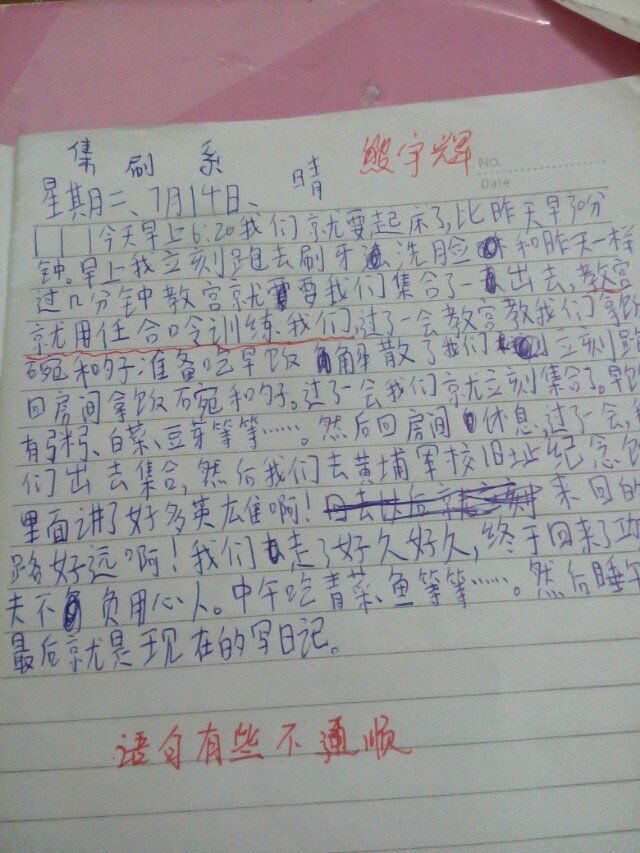 集 刷 系
熊宇辉
No.
Date
星期二、7月14日、 晴
今天早上6:20我们就要起床了,比昨天早30分
钟。早上我立刻跑去刷牙洗脸和昨天一样
过几分钟教官就要我们集合了出去,教官
就用任合口令训练我们,过了一会教官教我们拿饭
碗和勺子准备吃早饭解散了我们立刻跑
回房间拿饭碗和勺子。过了一会我们就立刻集合了。早饭
有粥、白菜、豆芽等等……。然后回房间休息,过了一会,
们出去集合,然后我们去黄埔军校旧址纪念馆
里面讲了好多英雄啊!来回的
路好远啊!我们走了好久好久,终于回来了功
夫不负用心人。中午吃青菜、鱼等等……。然后睡午
最后就是现在的写日记。
语句有些不通顺